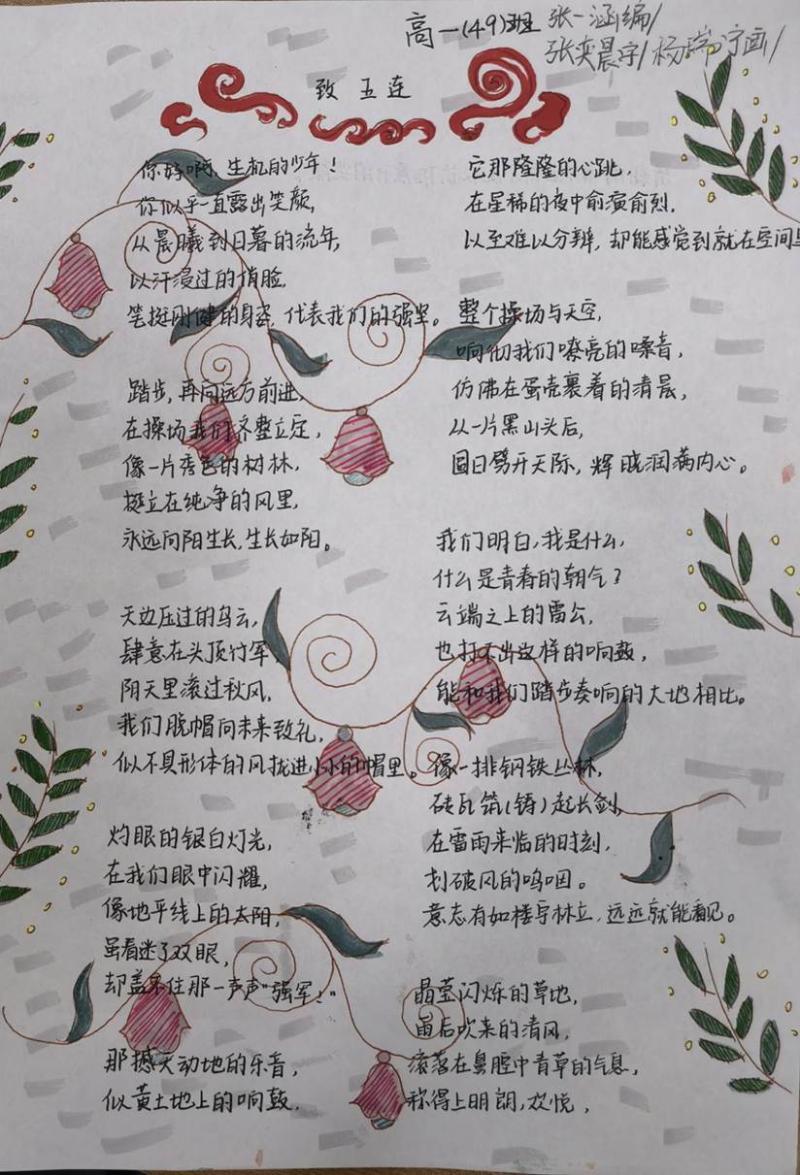 高一(49)班 张一涵编/
张奕晨字/杨瑞宁画/
致五连
你好啊,生机的少年!
你似乎一直露出笑颜,
从晨曦到日暮的流年,
以汗浸过的俏脸,
笔挺刚健的身姿,代表我们的强坚。
踏步,再向远方前进,
在操场我们齐整立定,
像一片秀色的树林,
挺立在纯净的风里,
永远向阳生长,生长如阳。
天边压过的乌云,
肆意在头顶行军,
阴天里滚过秋风,
我们脱帽向未来致礼,
似不具形体的风拢进小小的帽里。
灼眼的银白灯光,
在我们眼中闪耀,
像地平线上的太阳,
虽看迷了双眼,
却盖不住那一声声"强军!"
那撼天动地的乐音,
似黄土地上的响鼓,
它那隆隆的心跳,
在星稀的夜中俞演俞烈.
以至难以分辨,却能感觉到就在空间
整个操场与天空,
响彻我们嘹亮的嗓音,
仿佛在蛋壳裹着的清晨,
从一片黑山头后,
圆日劈开天际,辉晓润满内心。
我们明白,我是什么,
什么是青春的朝气?
云端之上的雷公,
也打不出这样的响鼓,
能和我们踏步奏响的大地相比。
像一排钢铁丛林,
砖瓦筑(铸)起长剑,
在雷雨来临的时刻,
划破风的呜咽。
意志有如楼宇林立,远远就能看见。
晶莹闪烁的草地,
雨后吹来的清风,
滚落在鼻腔中青草的气息,
称得上明朗,欢悦,